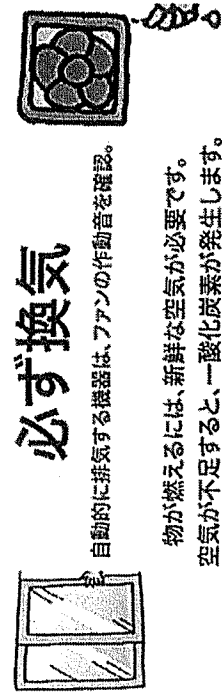 必ず換気
自動的に排気する機器は、ファンの作動音を確認。
物が燃えるには、新鮮な空気が必要です。
空気が不足すると、一酸化炭素が発生します。